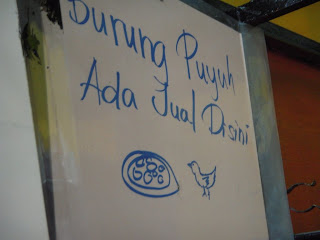 Burung Puyuh
Ada Jual Disini